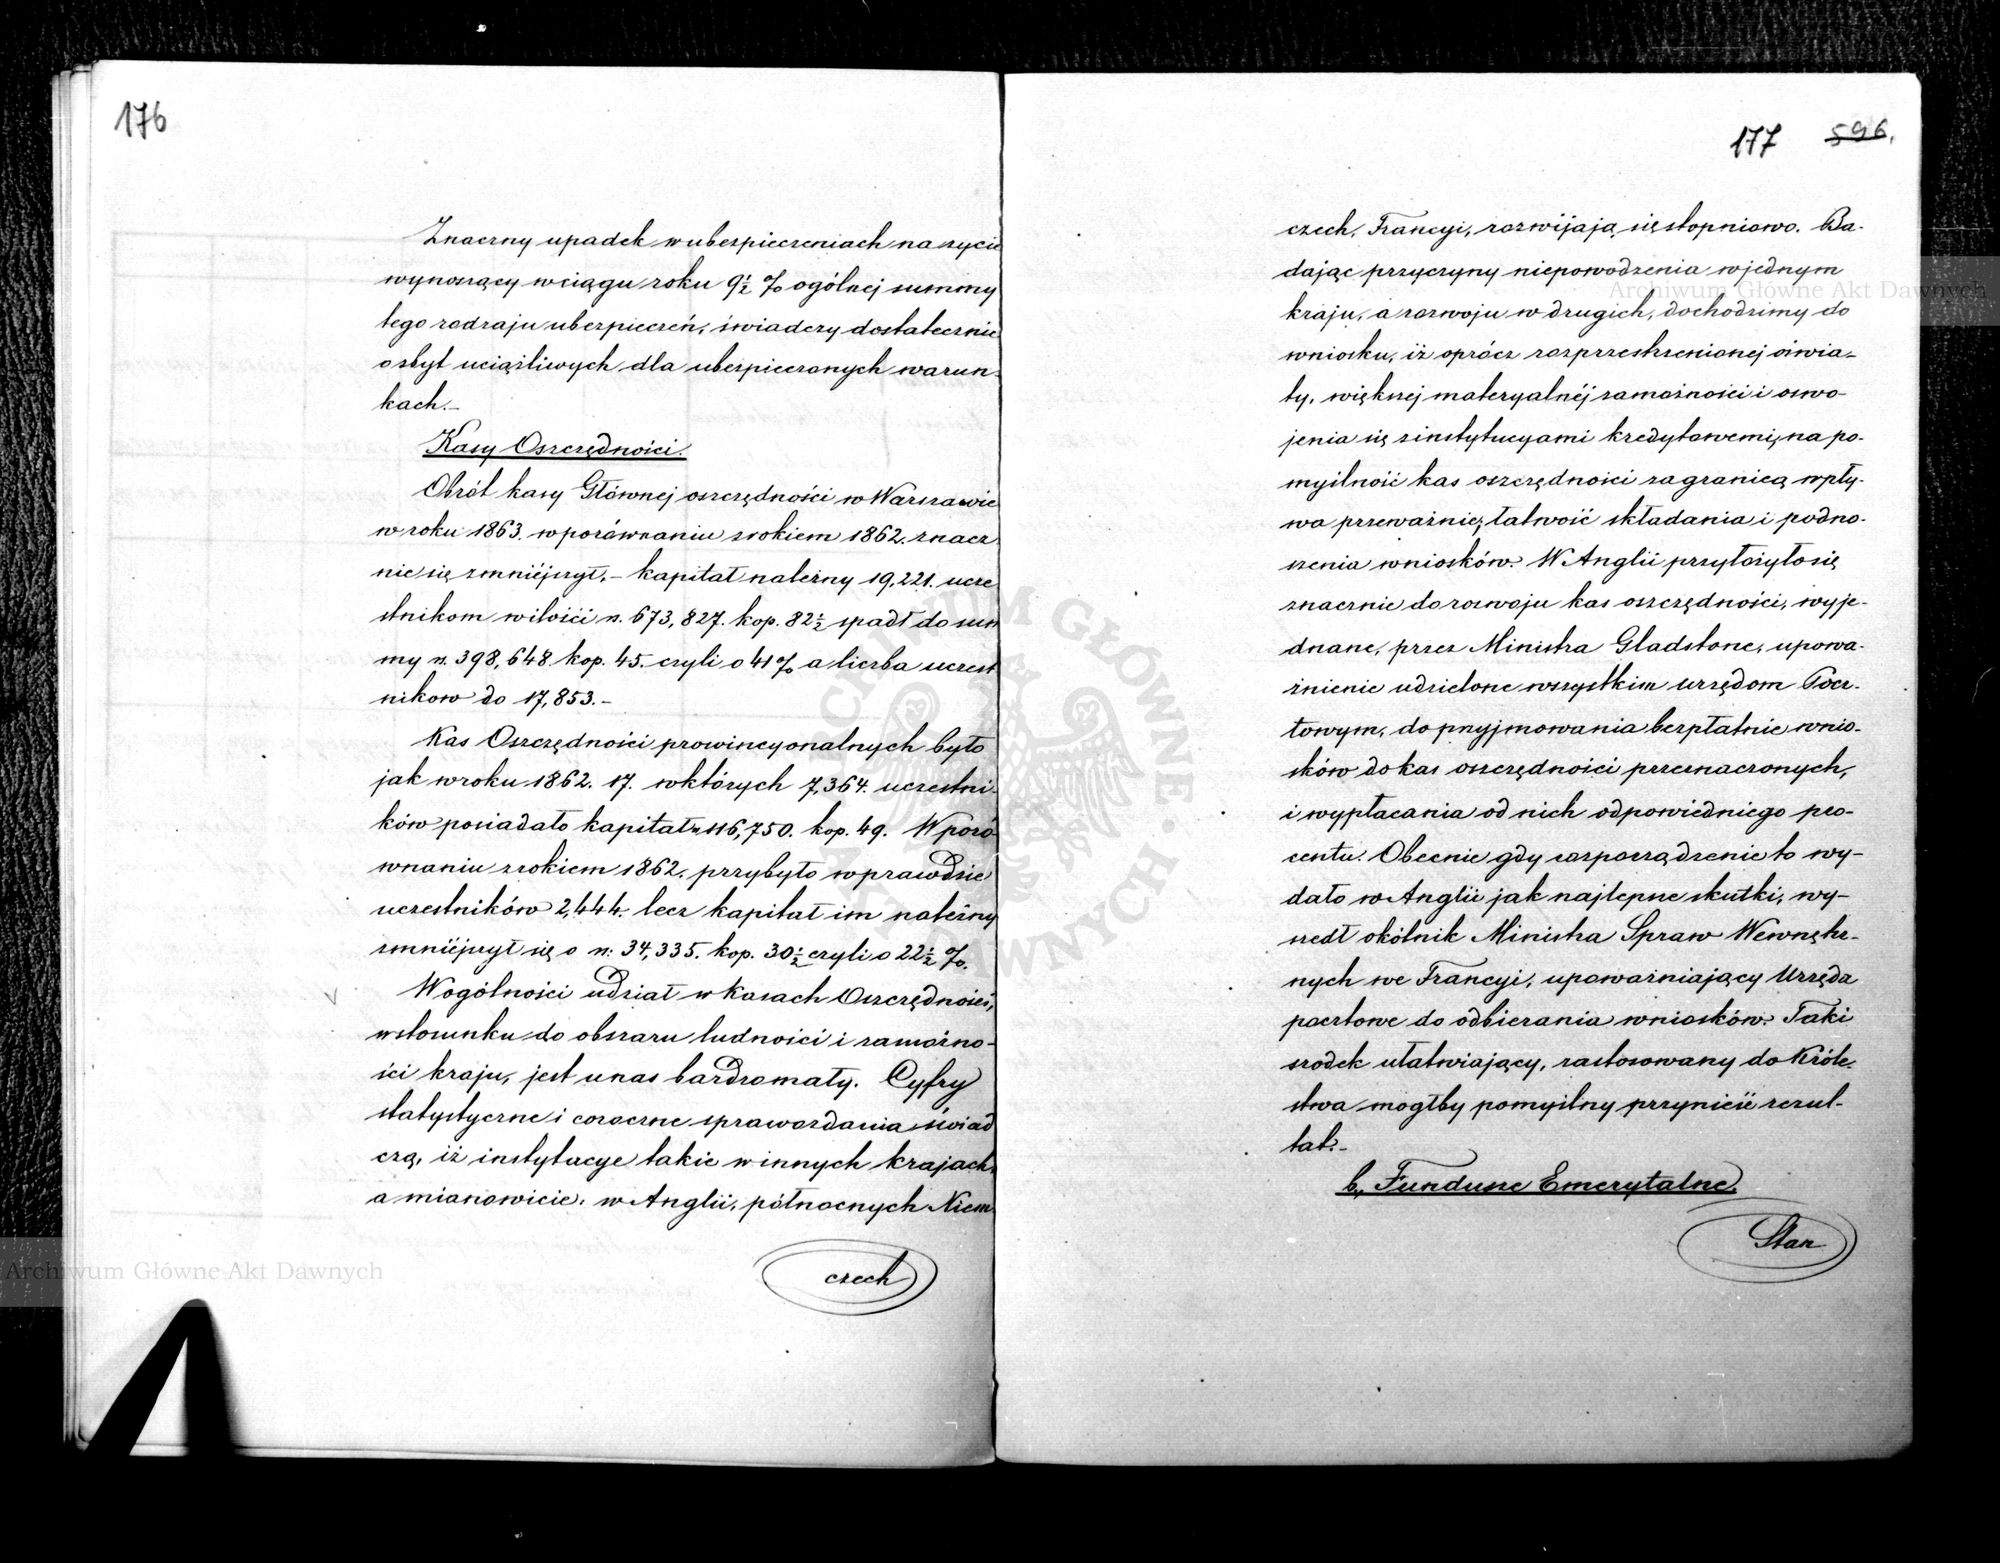 176
Znaczny upadek w ubezpieczeniach na życie
wynoszący w ciągu roku 9½ % ogólnej summy
tego rodzaju ubezpieczeń, świadczy dostatecznie
o zbyt uciążliwych dla ubezpieczonych warun-
kach.-
Kasy Oszczędności.
Obrót kasy Głównej oszczędności w Warszawie
w roku 1863. w porównaniu z rokiem 1862. znacz
nie się zmniéjszył.- kapitał należny 19,221. ucze
stnikom w ilości rs. 673,827. kop. 82½ spadł do sum
my rs. 398,648. kop. 45. czyli o 41% a liczba uczest
nikow do 17,853.-
Kas Oszczędności prowincyonalnych było
jak w roku 1862. 17. w których 7,364. uczestni-
ków posiadało kapitał rs 116,750. kop. 49. W poró
wnaniu z rokiem 1862. przybyło wprawdzie
uczestników 2,444. lecz kapitał im należny
zmniéjszył się o rs: 34,335. kop. 30½ czyli o 22½ %.
W ogólności udział w kasach Oszczędności,
w stosunku do obszaru ludności i zamożno-
ści kraju, jest u nas bardzo mały. Cyfry
statystyczne i coroczne sprawozdania świad
czą, iż instytucye takie w innych krajach,
a mianowicie: w Anglii, północnych Niem
czech
177 596.
czech, Francyi, rozwijają się stopniowo. Ba-
dając przyczyny niepowodzenia w jednym
kraju, a rozwoju w drugich, dochodzimy do
wniosku, iż oprócz rozprzestrzenionej oświa-
ty, większej materyalnéj zamożności i oswo-
jenia się z instytucyami kredytowemi, na po-
myślność kas oszczędności zagranicą wpły-
wa przeważnie, łatwość składania i podno-
szenia wniosków. W Anglii przyłożyło się
znacznie do rozwoju kas oszczędności, wyje-
dnane, przez Ministra Gladstone, upowa-
żnienie udzielone wszystkim urzędom Pocz-
towym, do przyjmowania bezpłatnie wnio-
sków do kas oszczędności przeznaczonych,
i wypłacania od nich odpowiedniego pro-
centu. Obecnie gdy rozporządzenie to wy-
dało w Anglii jak najlepsze skutki, wy-
szedł okólnik Ministra Spraw Wewnętrz-
nych we Francyi, upoważniający Urzęda
pocztowe do odbierania wniosków. Taki
srodek ułatwiający, zastosowany do Króle-
stwa mogłby pomyślny przynieść rezul-
tat.-
b., Fundusze Emerytalne.
Stan
Archiwum Główne Akt Dawnych
Archiwum Główne Akt Dawnych
ARCHIWUM GŁÓWNE AKT DAWNYCH